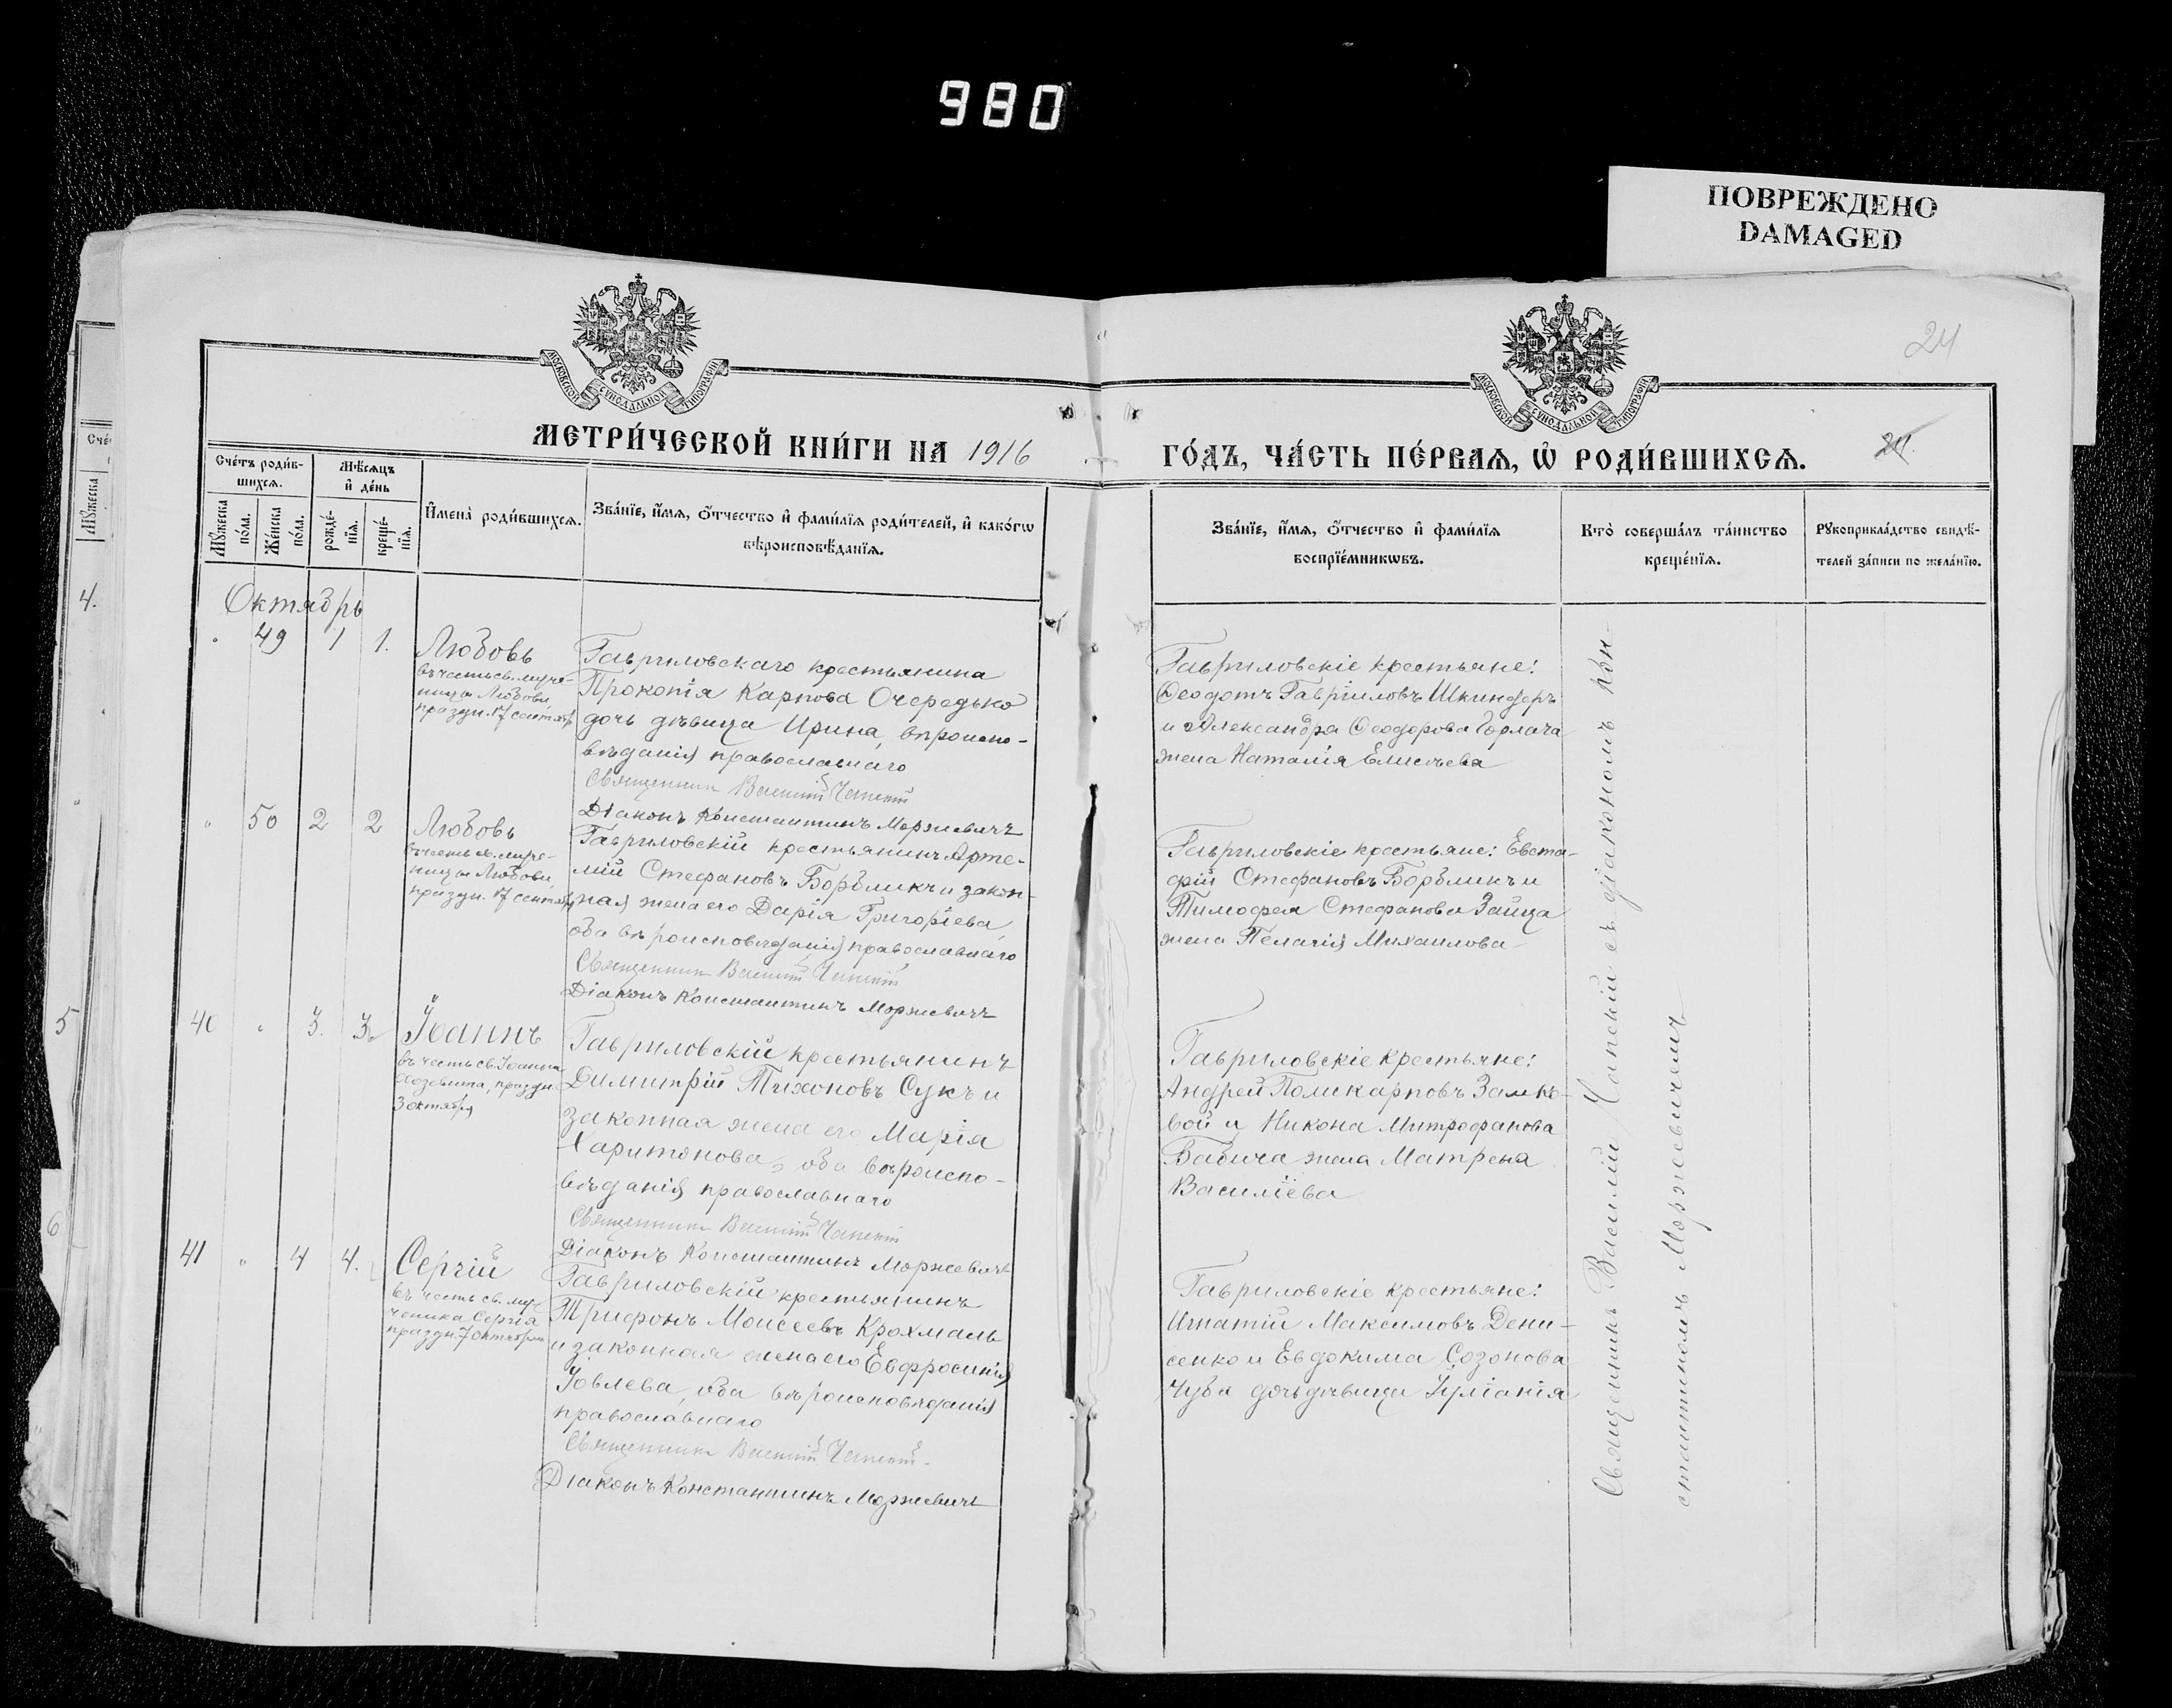 980
ПОВРЕЖДЕНО
DAMAGED
24
МОСКОВСКОЙ СѴНОДАЛЬНОЙ ТИПОГРАФІИ
МОСКОВСКОЙ СѴНОДАЛЬНОЙ ТИПОГРАФІИ
МЕТРИ́ЧЕСКОЙ КНИ́ГИ НА 1916
ГО́ДЪ, ЧА́СТЬ ПЕ́РВАѦ, Ѡ҆ РОДИ́ВШИХСѦ.
24.
Сче́тъ роди́в-
шихсѧ.
Мѣ́сѧцъ
и҆ де́нь
Мꙋ́жеска
по́ла.
Же́нска
по́ла.
рожде́-
нїѧ.
креще́-
нїѧ.
И҆мена̀ роди́вшихсѧ.
Зва́нїе, и҆́мѧ, ѻ҆́тчество и҆ фами́лїѧ роди́телей, и҆ како́гѡ
вѣроисповѣ́данїѧ.
Зва́нїе, и҆́мѧ, ѻ҆́тчество и҆ фами́лїѧ
воспрїе́мникѡвъ.
Кто̀ соверша́лъ та́инство
креще́нїѧ.
Рꙋкоприкла́дство свидѣ́-
телей за́писи по жела́нїю.
Сче́
Мꙋ́жеска
4.
5
6
Октябрь
" 49 1 1.
Любовь
въ честь св. муче-
ницы Любови,
праздн. 17 сентяб.
Гавриловскаго крестьянина
Прокопія Карпова Очередько
дочь дѣвица Ирина, вѣроиспо-
вѣданія православнаго
Священникъ Василій Чапскій
Діаконъ Константинъ Моржевичъ
Гавриловскіе крестьяне:
Ѳеодотъ Гавріиловъ Шкиндеръ
и Александра Ѳеодорова Горлача
жена Наталія Елисѣева
" 50 2 2
Любовь
въ честь св. муче-
ницы Любови,
праздн. 17 сентяб.
Гавриловскій крестьянинъ Арте-
мій Стефановъ Борбликъ и закон-
ная жена его Дарія Григоріева,
оба вѣроисповѣданія православнаго
Священникъ Василій Чапскій
Діаконъ Константинъ Моржевичъ
Гавриловскіе крестьяне: Евста-
фій Стефановъ Борбликъ и
Тимофея Стефанова Зайца
жена Пелагія Михаилова
40 " 3. 3.
Іоаннъ
въ честь св. Іоанна
Хозевита, праздн.
3 октября
Гавриловскій крестьянинъ
Димитрій Тихоновъ Сукъ и
законная жена его Марія
Харитонова, оба вѣроиспо-
вѣданія православнаго
Священникъ Василій Чапскій
Діаконъ Константинъ Моржевичъ
Гавриловскіе крестьяне:
Андрей Поликарповъ Замко-
вой и Никона Митрофанова
Бабича жена Матрена
Василіева
41 " 4 4.
Сергій
въ честь св. му-
ченика Сергія
праздн. 7 октября
Гавриловскій крестьянинъ
Трифонъ Моисеевъ Крохмаль
и законная жена его Евфросинія
Іовлева, оба вѣроисповѣданія
православнаго
Священникъ Василій Чапскій
Діаконъ Константинъ Моржевичъ
Гавриловскіе крестьяне:
Игнатій Максимовъ Дени-
сенко и Евдокима Созонова
Чуба дочь дѣвица Іуліанія
Священникъ Василій Чапскій съ діакономъ Кон-
стантиномъ Моржевичемъ